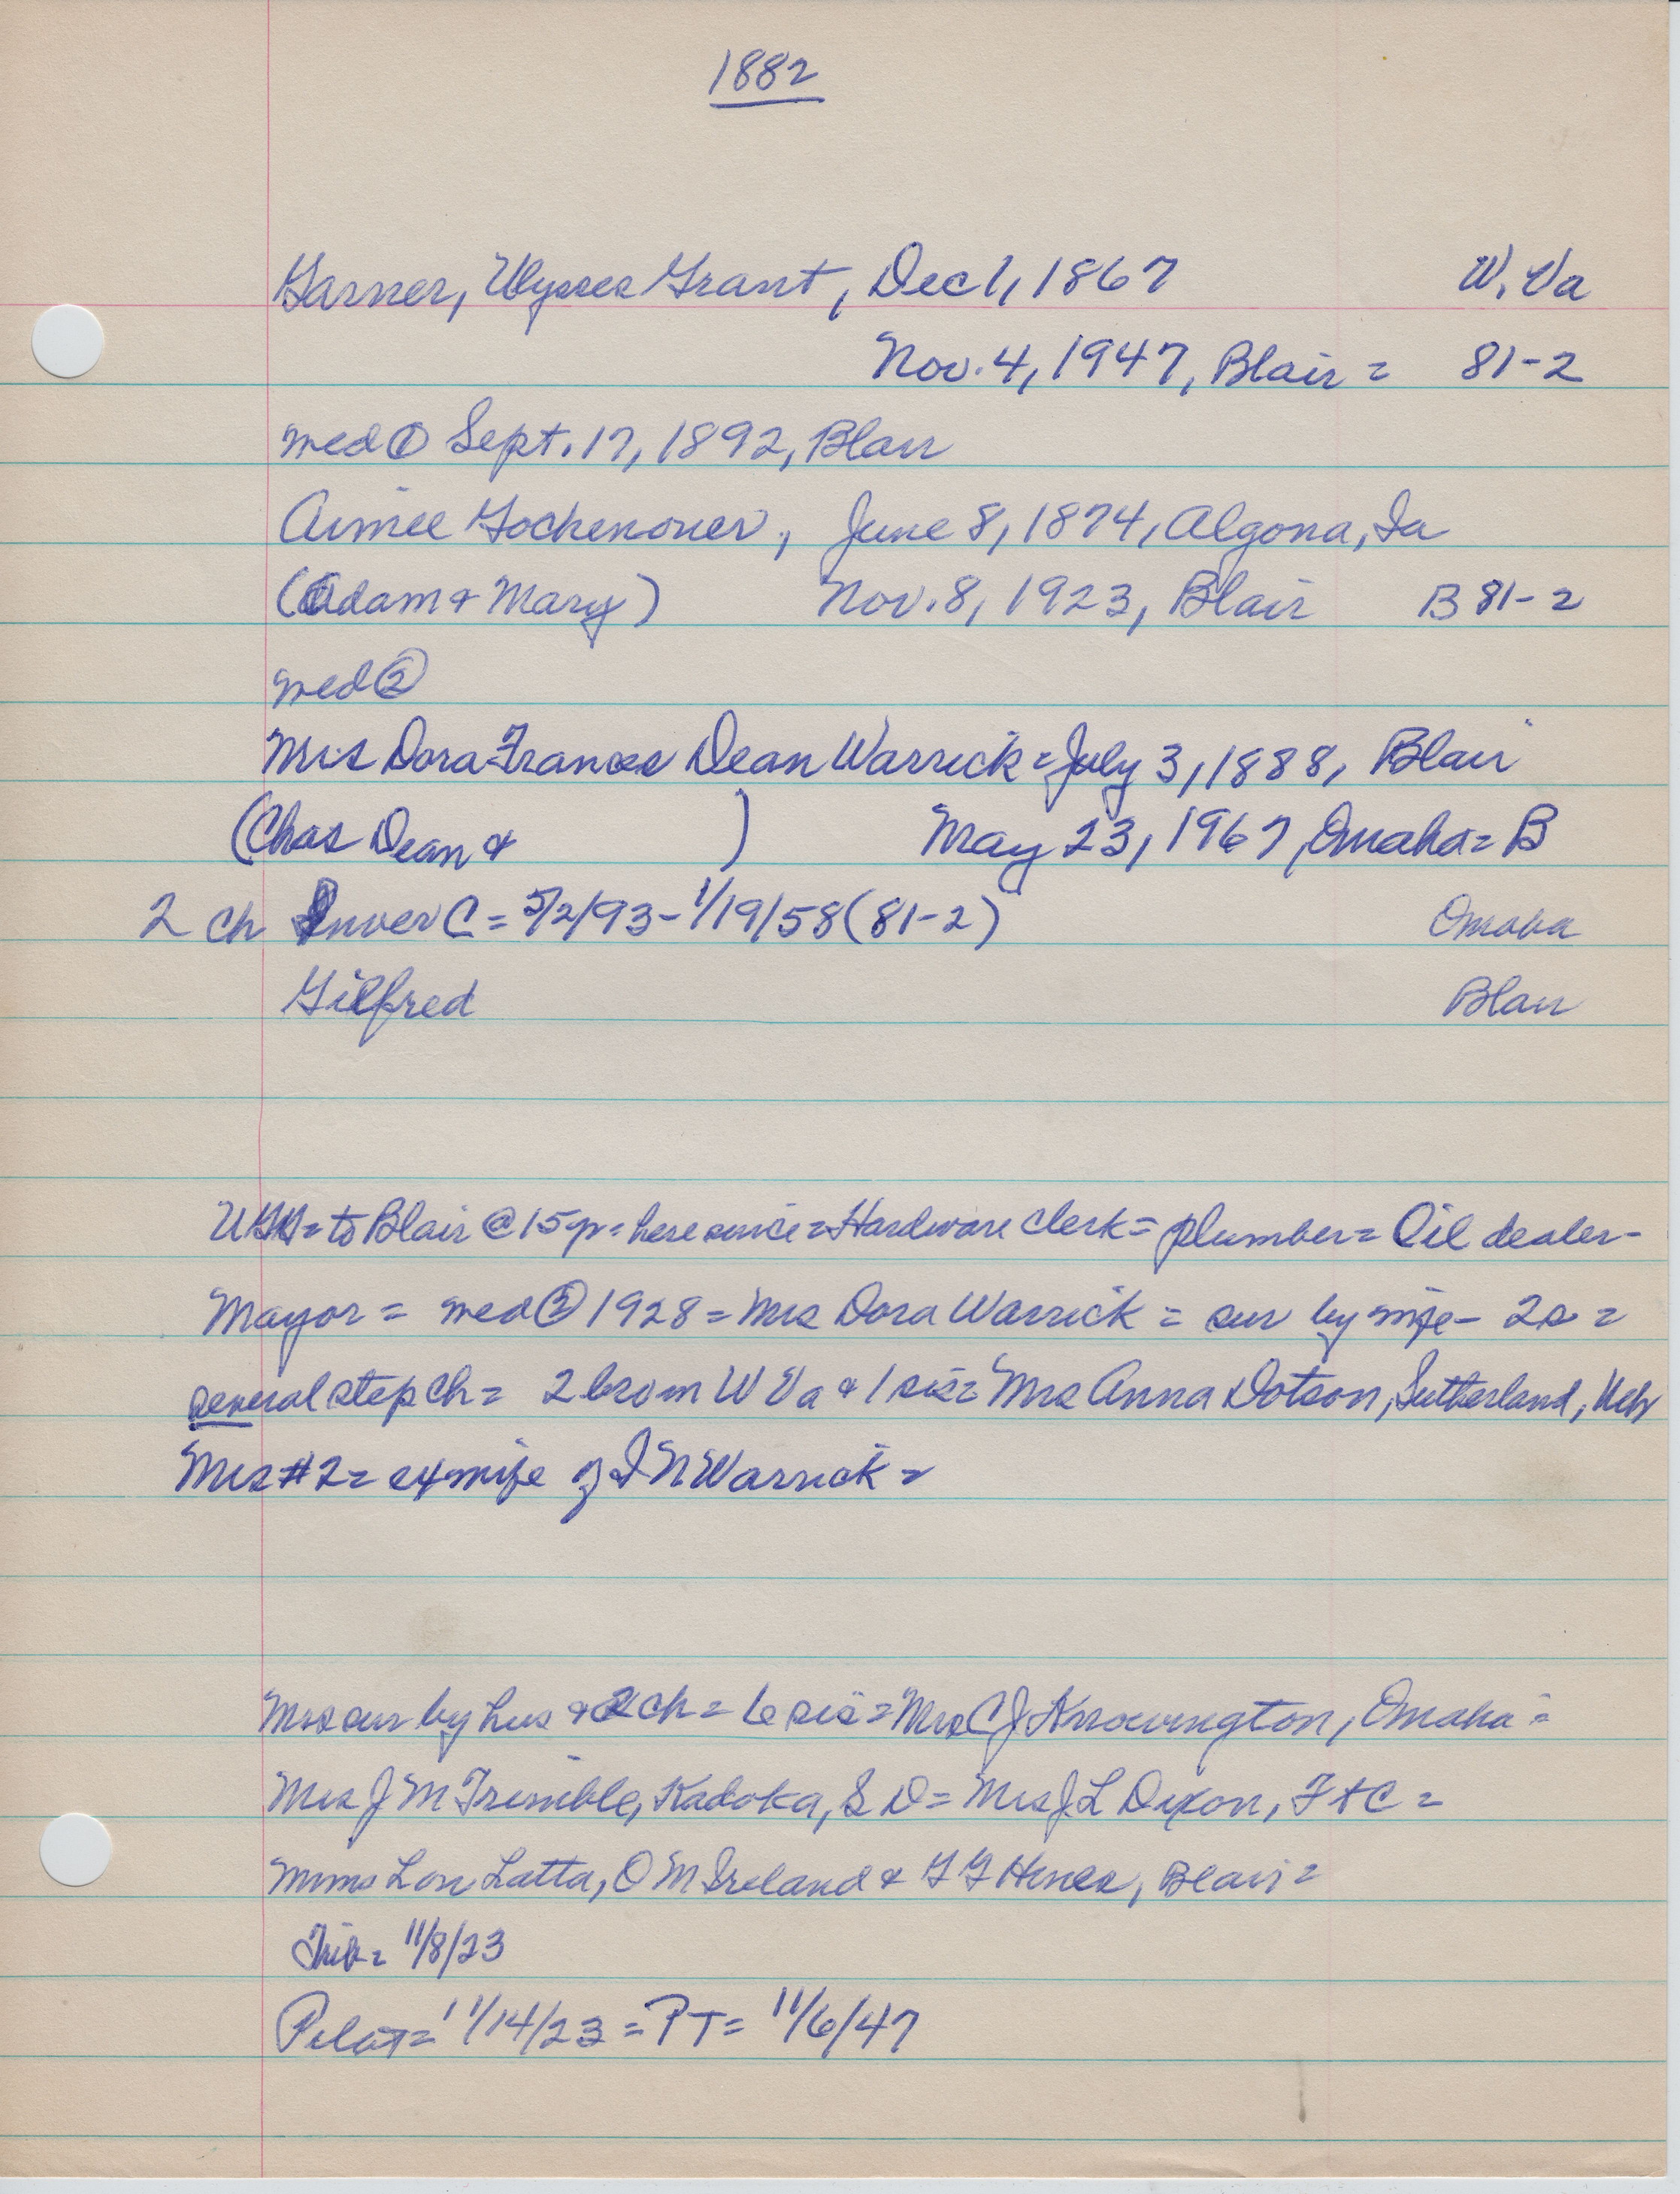 1882
Garner, Ulysses Grant, Dec 1, 1867 W. Va
Nov. 4, 1947, Blair = 81-2
med ① Sept. 17, 1892, Blair
Aimee Gochenouer, June 8, 1874, Algona, Ia
(Adam & Mary) Nov. 8, 1923, Blair B 81-2
med ②
Mrs Dora Frances Dean Warrick = July 3, 1888, Blair
(Chas Dean & ) May 23, 1967, Omaha = B
2 ch Inver C = 5/2/93 - 1/19/58 (81-2) Omaha
Gilfred Blair
UGG = to Blair @ 15 y = here since = Hardware clerk = plumber = Oil dealer -
Mayor = med ② 1928 = Mrs Dora Warrick = sur by wife - 2s =
several step ch = 2 bro in W Va & 1 sis = Mrs Anna Dotson, Sutherland, Neb
Mrs #2 = ex wife of I N Warrick =
Mrs sur by hus & 2 ch = 6 sis = Mrs C J Knowington, Omaha =
Mrs J M Trimble, Kadoka, S D = Mrs J L Dixon, Ft C =
Mmes Lon Latta, O M Ireland & G G Hines, Blair =
Trib = 11/8/23
Pilot = 11/14/23 = PT = 11/6/47